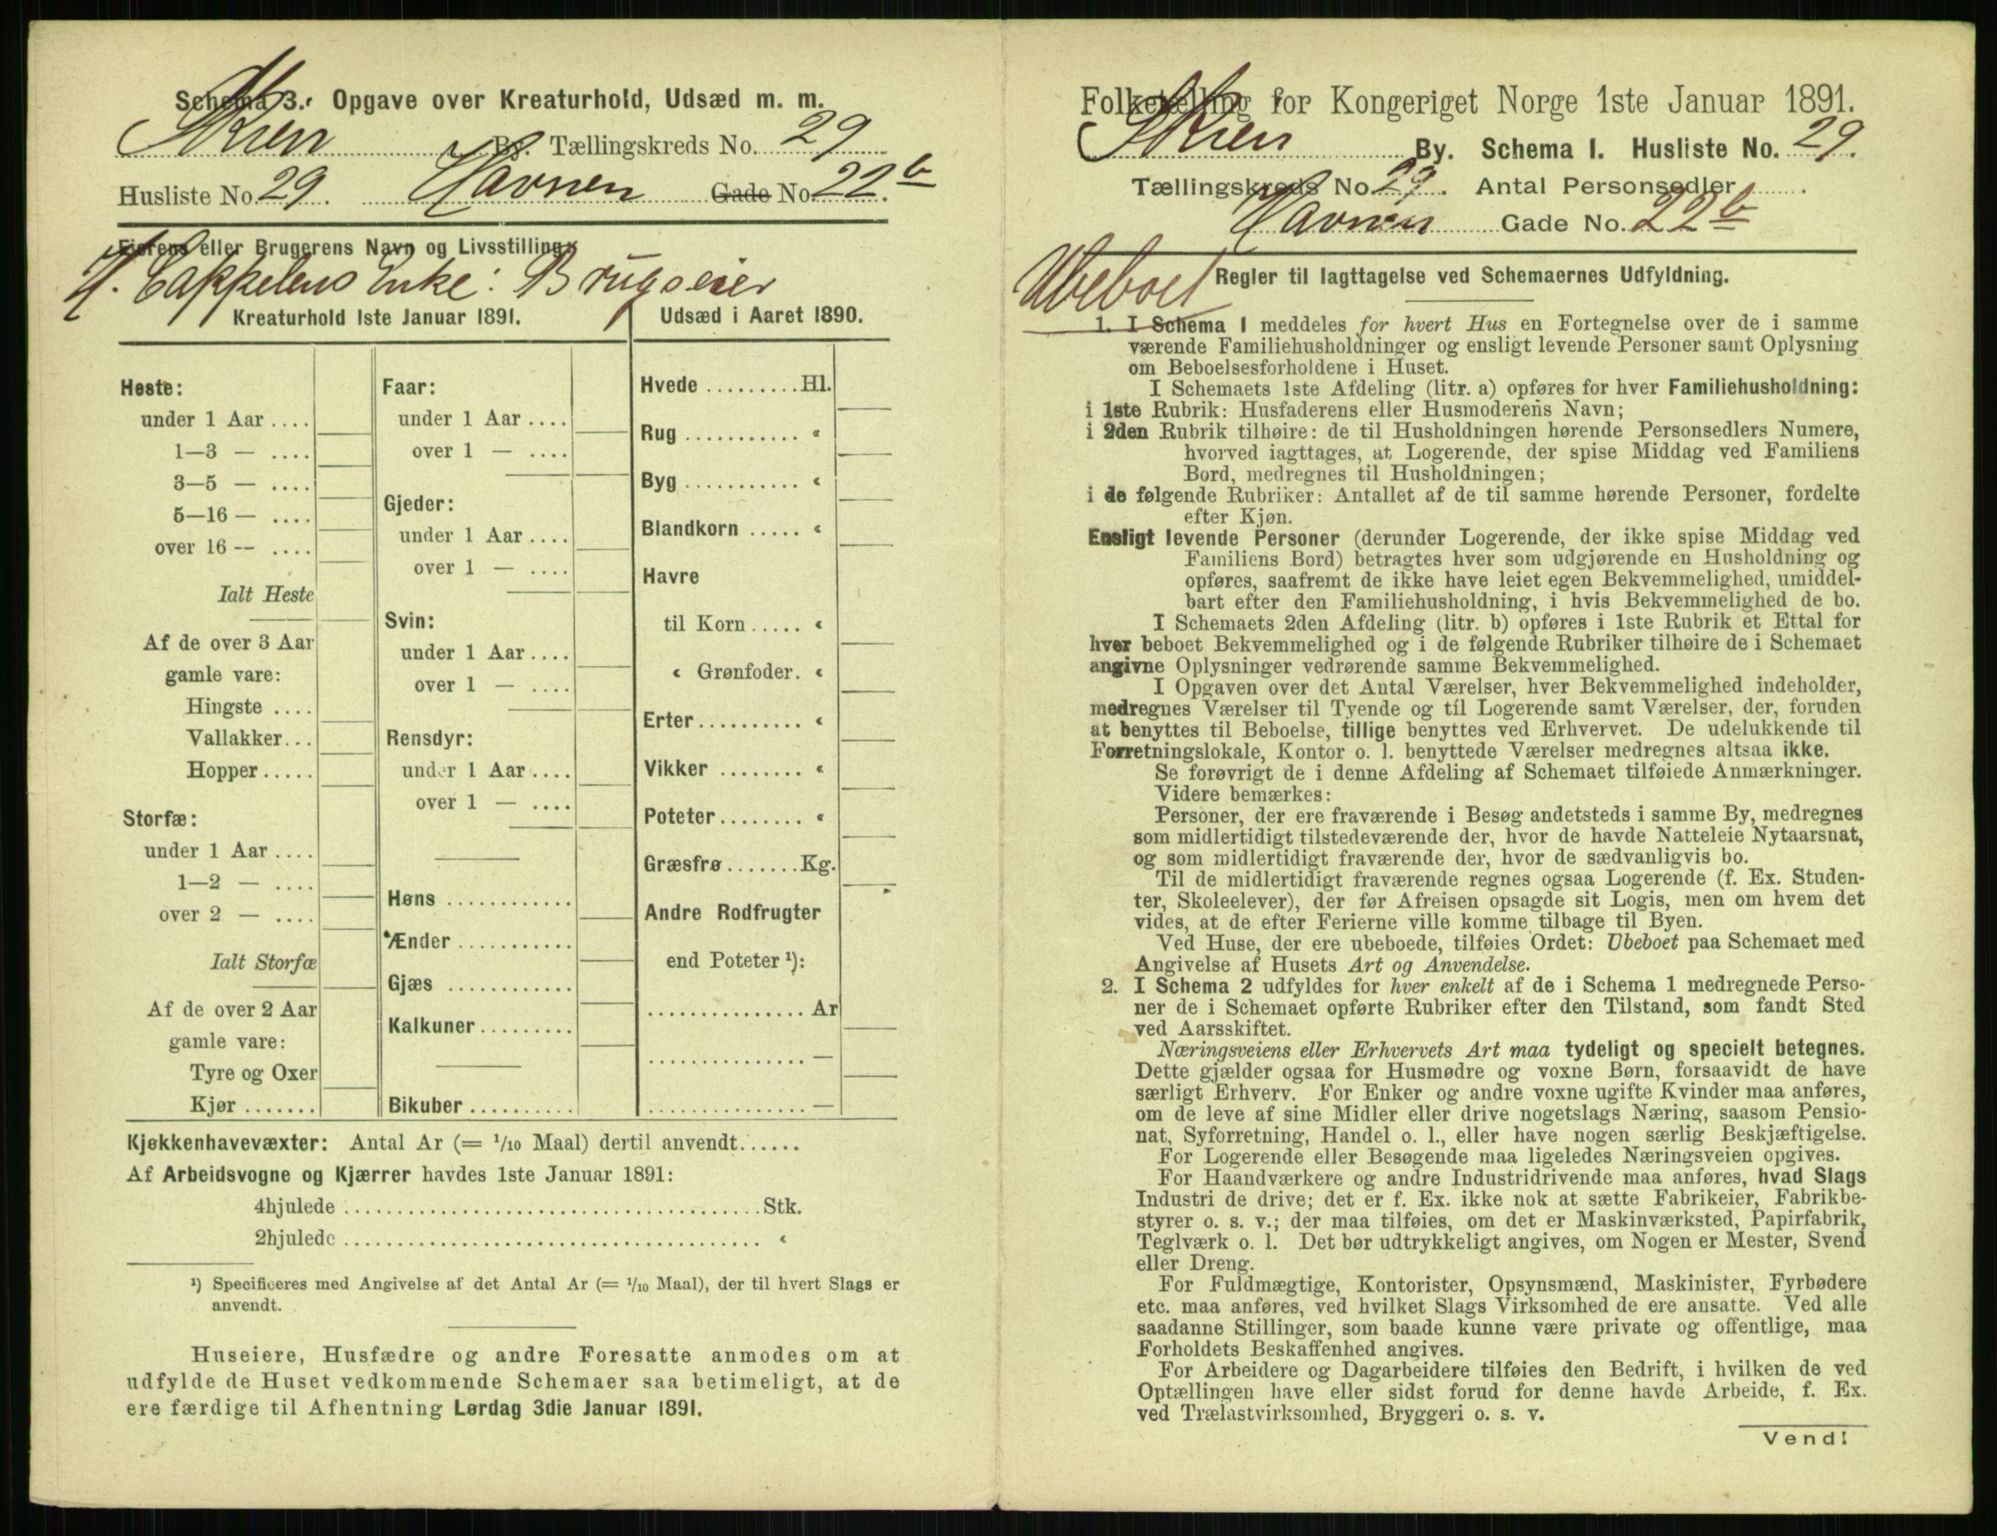 Schema 3. Opgave over Kreaturhold, Udsæd m. m.
Skien By. Tællingskreds No. 29
Husliste No. 29. Havnen Gade No. 22 b.
Eierens eller Brugerens Navn og Livsstilling:
H. Cappelens Enke: Brugseier
Kreaturhold 1ste Januar 1891.
Heste:
under 1 Aar ....
1—3 — ....
3—5 — ....
5—16 — ....
over 16 — ....
Ialt Heste
Af de over 3 Aar
gamle vare:
Hingste ....
Vallakker...
Hopper.....
Storfæ:
under 1 Aar ....
1—2 — ....
over 2 — ....
Ialt Storfæ
Af de over 2 Aar
gamle vare:
Tyre og Oxer
Kjør .......
Faar:
under 1 Aar ....
over 1 — ....
Gjeder:
under 1 Aar ....
over 1 — ....
Svin:
under 1 Aar ....
over 1 — ....
Rensdyr:
under 1 Aar ....
over 1 — ....
Høns ............
Ænder ...........
Gjæs ............
Kalkuner.........
Bikuber ..........
Udsæd i Aaret 1890.
Hvede .........Hl.
Rug ........... «
Byg ........... «
Blandkorn ..... «
Havre
til Korn ..... «
« Grønfoder. «
Erter.......... «
Vikker ........ «
Poteter........ «
Græsfrø .......Kg.
Andre Rodfrugter
end Poteter ¹):
............... Ar
............... —
............... —
Kjøkkenhavevæxter: Antal Ar (= 1/10 Maal) dertil anvendt......
Af Arbeidsvogne og Kjærrer havdes 1ste Januar 1891:
4hjulede ....................................... Stk.
2hjulede ....................................... «
¹) Specificeres med Angivelse af det Antal Ar (= 1/10 Maal), der til hvert Slags er
anvendt.
Huseiere, Husfædre og andre Foresatte anmodes om at
udfylde de Huset vedkommende Schemaer saa betimeligt, at de
ere færdige til Afhentning Lørdag 3die Januar 1891.
Folketælling for Kongeriget Norge 1ste Januar 1891.
Skien By. Schema I. Husliste No. 29.
Tællingskreds No. 29. Antal Personsedler ....... .
Havnen Gade No. 22 b
Ubeboet
Regler til Iagttagelse ved Schemaernes Udfyldning.
1. I Schema 1 meddeles for hvert Hus en Fortegnelse over de i samme
værende Familiehusholdninger og ensligt levende Personer samt Oplysning
om Beboelsesforholdene i Huset.
I Schemaets 1ste Afdeling (litr. a) opføres for hver Familiehusholdning:
i 1ste Rubrik: Husfaderens eller Husmoderens Navn;
i 2den Rubrik tilhøire: de til Husholdningen hørende Personsedlers Numere,
hvorved iagttages, at Logerende, der spise Middag ved Familiens
Bord, medregnes til Husholdningen;
i de følgende Rubriker: Antallet af de til samme hørende Personer, fordelte
efter Kjøn.
Ensligt levende Personer (derunder Logerende, der ikke spise Middag ved
Familiens Bord) betragtes hver som udgjørende en Husholdning og
opføres, saafremt de ikke have leiet egen Bekvemmelighed, umiddel-
bart efter den Familiehusholdning, i hvis Bekvemmelighed de bo.
I Schemaets 2den Afdeling (litr. b) opføres i 1ste Rubrik et Ettal for
hver beboet Bekvemmelighed og i de følgende Rubriker tilhøire de i Schemaet
angivne Oplysninger vedrørende samme Bekvemmelighed.
I Opgaven over det Antal Værelser, hver Bekvemmelighed indeholder,
medregnes Værelser til Tyende og til Logerende samt Værelser, der, foruden
at benyttes til Beboelse, tillige benyttes ved Erhvervet. De udelukkende til
Forretningslokale, Kontor o. l. benyttede Værelser medregnes altsaa ikke.
Se forøvrigt de i denne Afdeling af Schemaet tilføiede Anmærkninger.
Videre bemærkes:
Personer, der ere fraværende i Besøg andetsteds i samme By, medregnes
som midlertidigt tilstedeværende der, hvor de havde Natteleie Nytaarsnat,
og som midlertidigt fraværende der, hvor de sædvanligvis bo.
Til de midlertidigt fraværende regnes ogsaa Logerende (f. Ex. Studen-
ter, Skoleelever), der før Afreisen opsagde sit Logis, men om hvem det
vides, at de efter Ferierne ville komme tilbage til Byen.
Ved Huse, der ere ubeboede, tilføies Ordet: Ubeboet paa Schemaet med
Angivelse af Husets Art og Anvendelse.
2. I Schema 2 udfyldes for hver enkelt af de i Schema 1 medregnede Perso-
ner de i Schemaet opførte Rubriker efter den Tilstand, som fandt Sted
ved Aarsskiftet.
Næringsveiens eller Erhvervets Art maa tydeligt og specielt betegnes.
Dette gjælder ogsaa for Husmødre og voxne Børn, forsaavidt de have
særligt Erhverv. For Enker og andre voxne ugifte Kvinder maa anføres,
om de leve af sine Midler eller drive nogetslags Næring, saasom Pensio-
nat, Syforretning, Handel o. l., eller have nogen særlig Beskjæftigelse.
For Logerende eller Besøgende maa ligeledes Næringsveien opgives.
For Haandværkere og andre Industridrivende maa anføres, hvad Slags
Industri de drive; det er f. Ex. ikke nok at sætte Fabrikeier, Fabrikbe-
styrer o. s. v.; der maa tilføies, om det er Maskinværksted, Papirfabrik,
Teglværk o. l. Det bør udtrykkeligt angives, om Nogen er Mester, Svend
eller Dreng.
For Fuldmægtige, Kontorister, Opsynsmænd, Maskinister, Fyrbødere
etc. maa anføres, ved hvilket Slags Virksomhed de ere ansatte. Ved alle
saadanne Stillinger, som baade kunne være private og offentlige, maa
Forholdets Beskaffenhed angives.
For Arbeidere og Dagarbeidere tilføies den Bedrift, i hvilken de ved
Optællingen have eller sidst forud for denne havde Arbeide, f. Ex.
ved Trælastvirksomhed, Bryggeri o. s. v.
Vend!